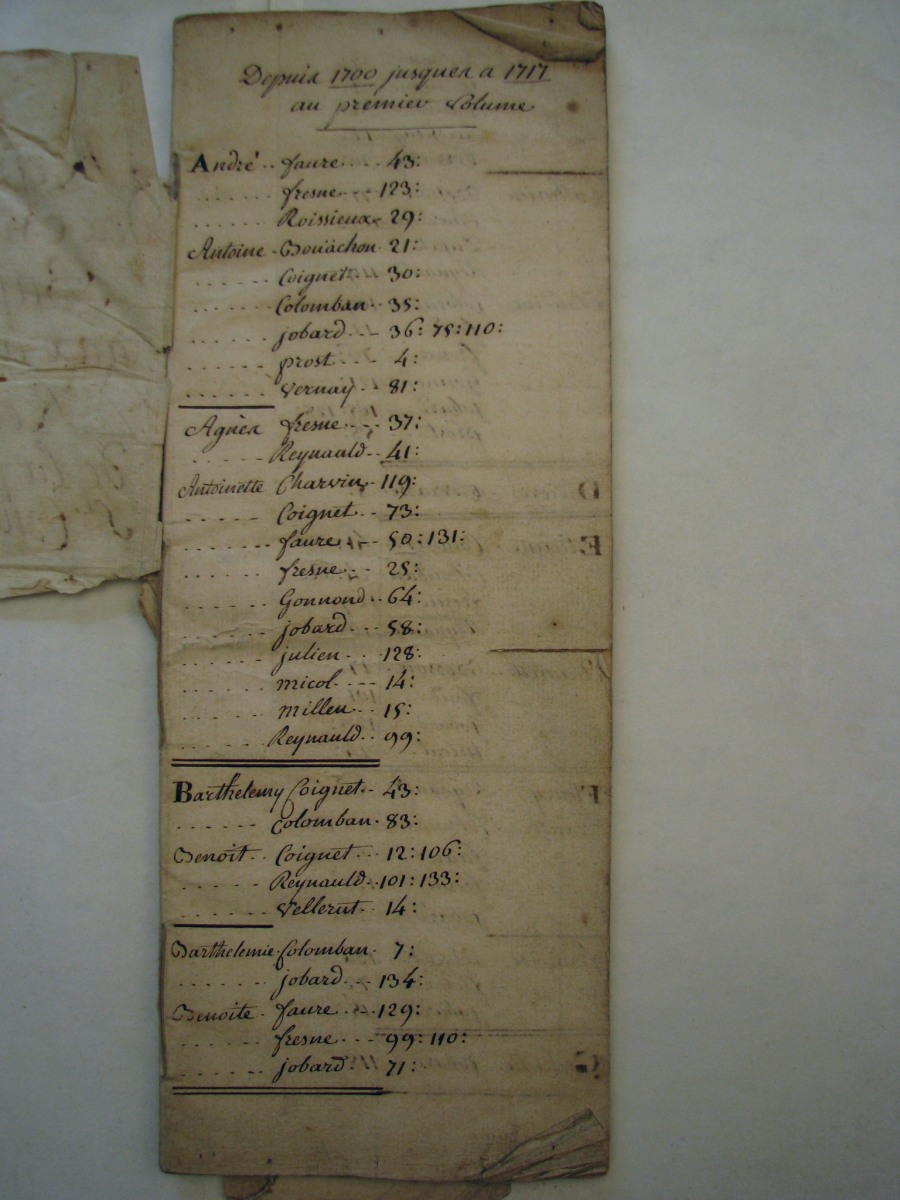 Depuis 1700 jusques a 1717
au premier volume
André .. faure .... 43:
...... fresne --- 123:
...... Roissieux. 29:
Antoine . Bouâchon . 21:
...... Coignet . 30:
...... Colomban .. 35:
...... jobard ... 36: 75: 110:
...... prost .... 4:
...... vernay .. 81:
Agnès fresne ... 37:
..... Reynauld .. 41:
Antoinette Charvin .. 119:
...... Coignet .. 73:
...... faure ... 50: 131:
...... fresne ... 25:
...... Gonnond .. 64:
...... jobard ... 58:
...... julien ... 128:
...... micol .... 14:
...... .. 15:
...... Reynauld .. 99:
Barthelemy Coignet .. 43:
...... colomban . 83:
Benoit .. Coignet ... 12: 106:
...... Reynauld .. 101: 133:
...... vellerut .. 14:
Barthelemie . Colomban . 7:
...... jobard ... 134:
Benoite . faure ... 129:
...... fresne ... 99: 110:
...... jobard ... 71: